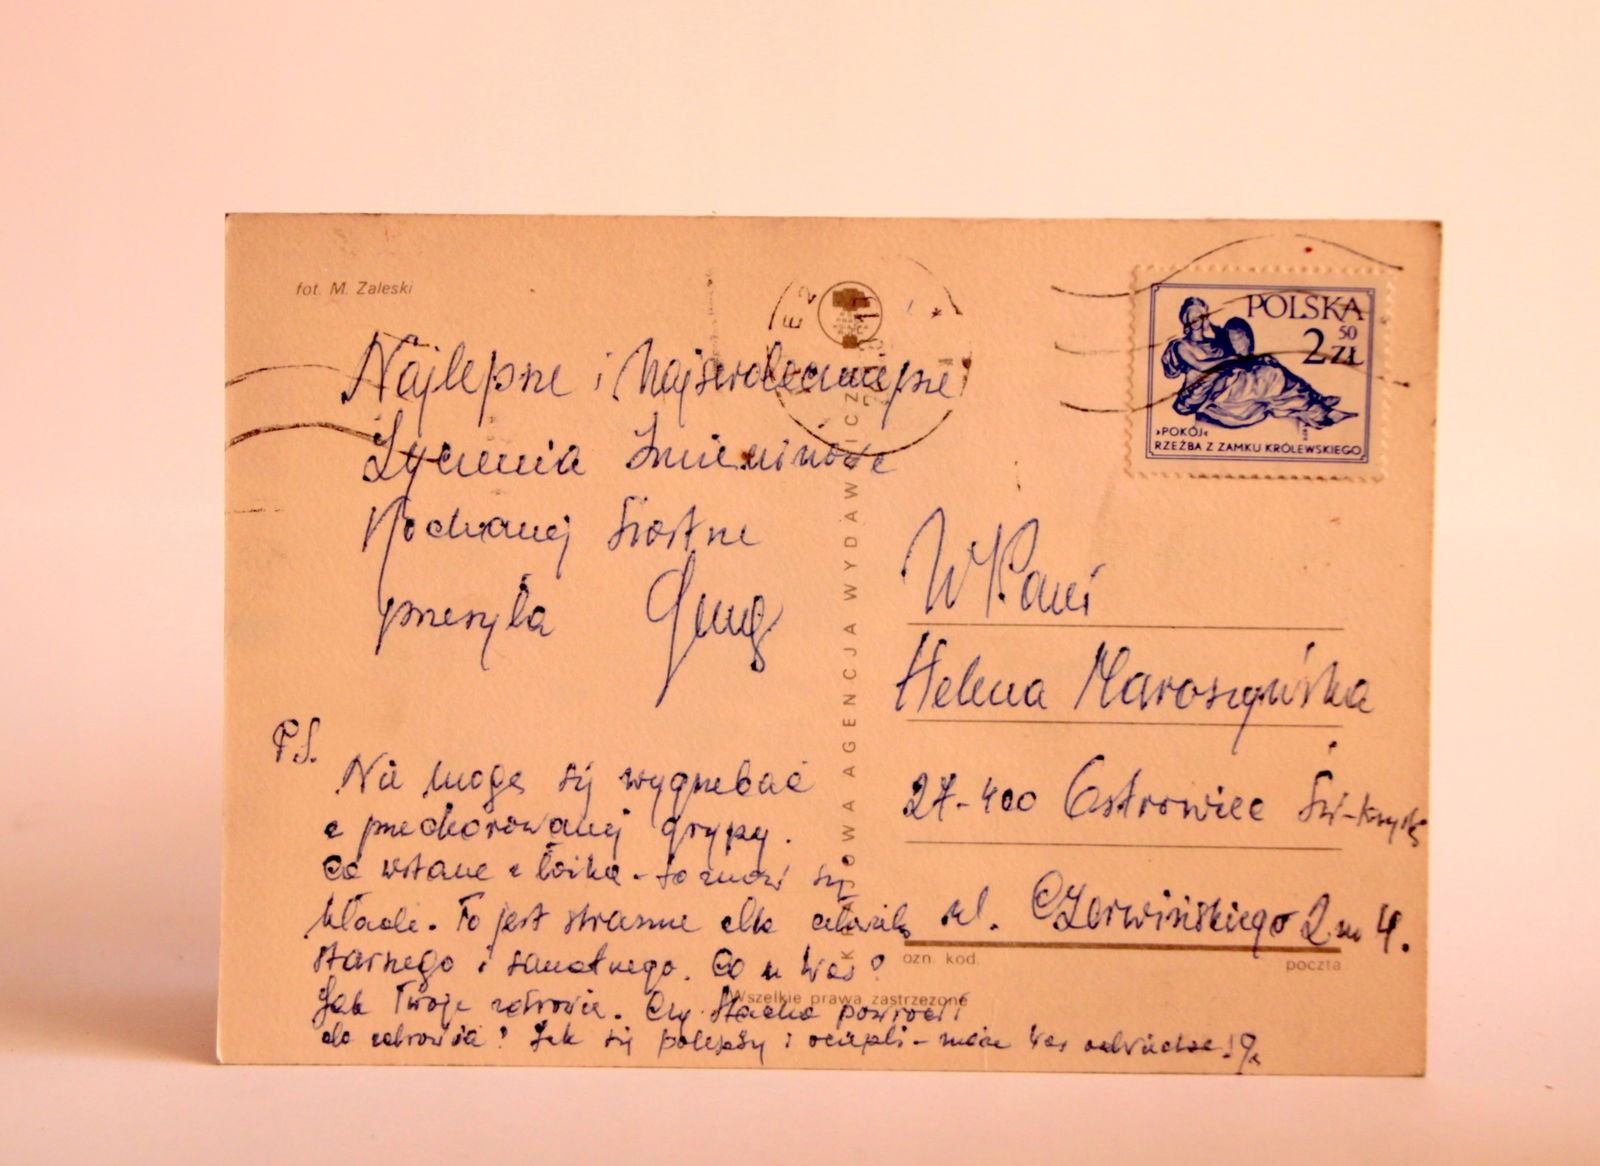 fot. M. Zaleski
POLSKA
2 50 ZŁ
»POKÓJ«
RZEŹBA Z ZAMKU KRÓLEWSKIEGO
Najlepsze i Najserdeczniejsze
Życzenia Imieninowe
Kochanej Siostrze
przesyła
KRAJOWA AGENCJA WYDAWNICZA
W.Pani
Helena Maroszyńska
27-400 Ostrowiec Św-krzyski
ul. Czerwińskiego 2 m 4.
ozn. kod.
poczta
P.S.
Nie mogę się wygrzebać
z przechorowanej grypy.
Co wstanę z łóżka - to znów się
kładę. To jest straszne dla człowieka
starszego i samotnego. Co u Was?
Jak Twoje zdrowie. Czy Stacha powróci
Wszelkie prawa zastrzeżone
do zdrowia? Jak się polepszy i ociepli - może Was odwiedzę!